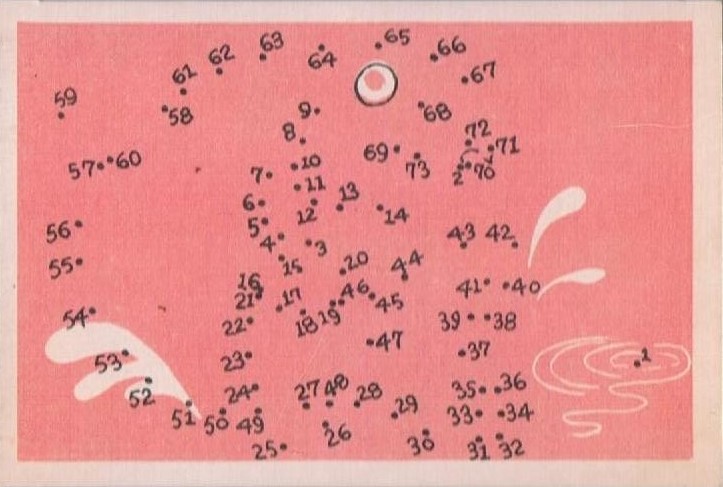 62 63 64 65 66
61 67
59 58 9 68
8 72
57 60 7 10 69 73 71
11 2 70
6 12 13 14
56 5 4 3 43 42
55 15 20 44
16 21 17 46 45 41 40
54 22 18 19 39 38
53 23 47 37 1
52 24 27 48 28 35 36
51 50 49 29 33 34
25 26 30 31 32